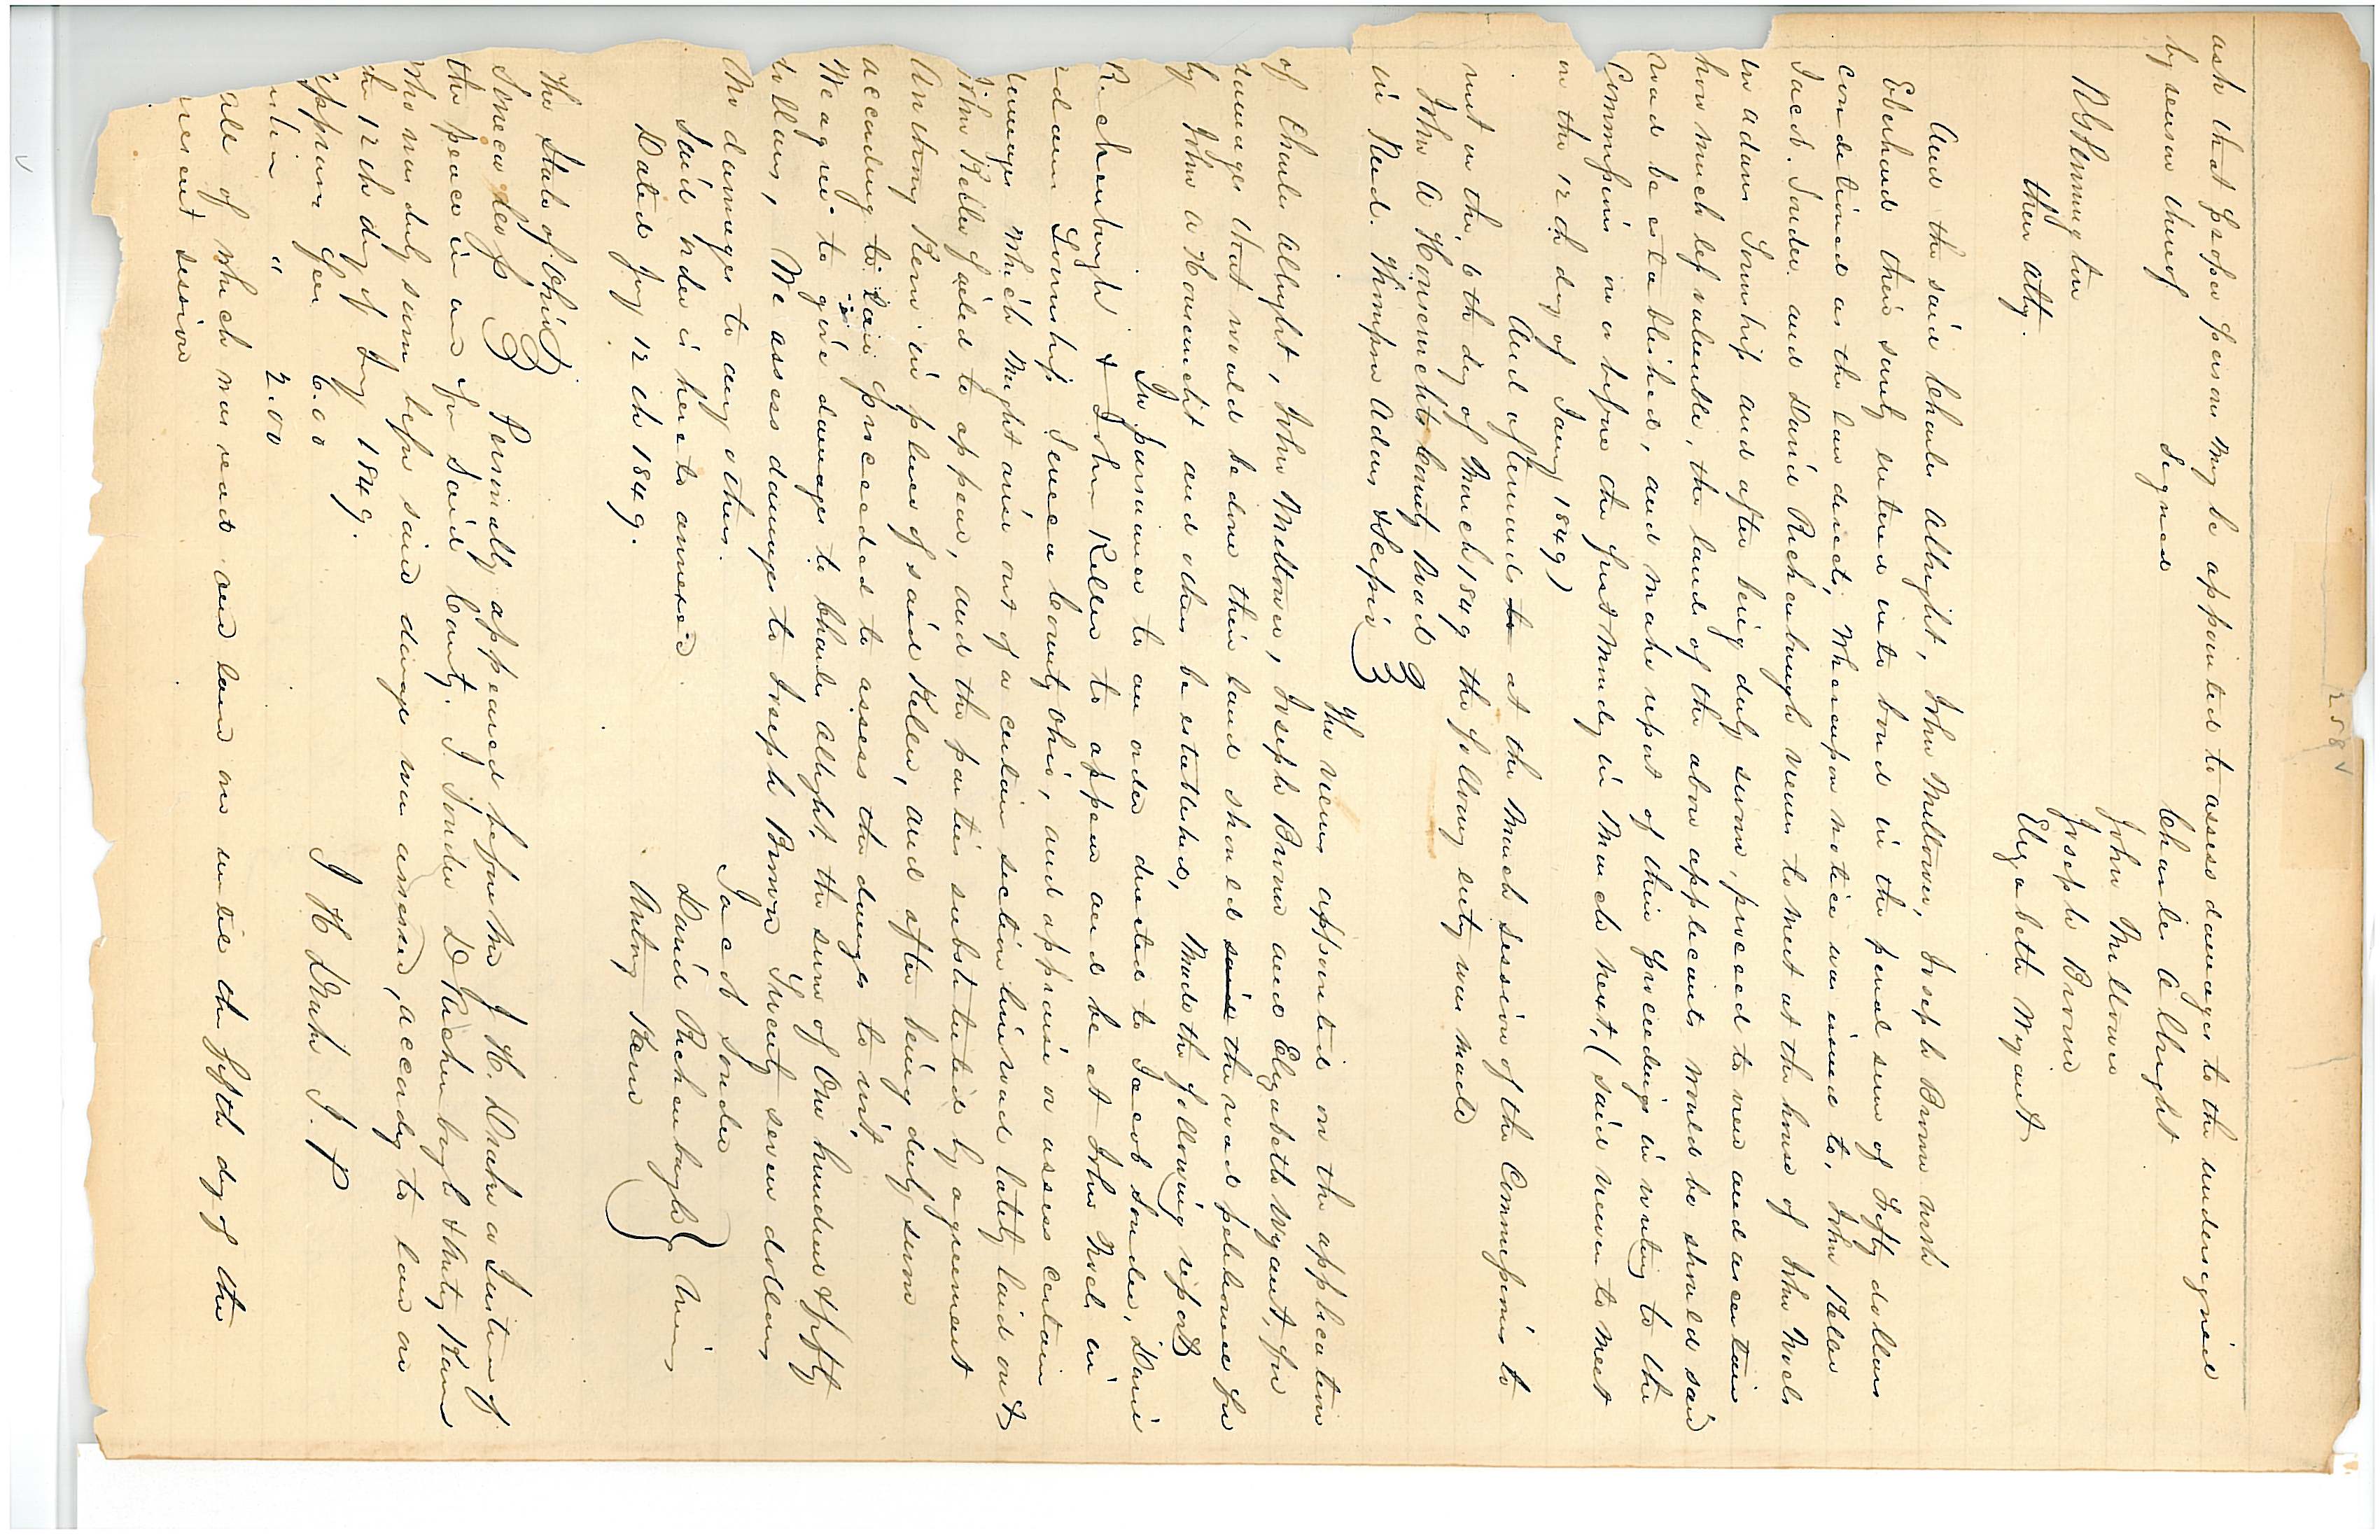 258
ask that proper persons may be appointed to assess damages to the undersigned
by reason thereof Signed Charles Albright
John Millower
R G Pennington Joseph Brown
their atty. Elizabeth Wyant
And the said Charles Albright, John Millower, Joseph Brown with
Eberhard their surety entered into bond in the penal sum of Fifty dollars
conditioned as the law directs, Whereupon notice was issued to, John Keller
Jacob Souder and David Richenbaugh viewers to meet at the house of John Noels
in Adams Township and after being duly sworn, proceed to view and ascertain
how much less valuable, the lands of the above applicants would be should said
road be established, and make report of their proceedings in writing to the
Commissioners on or before the first Monday in March next, (said viewers to meet
on the 12th day of Jany 1849)
And afterwards to at the March session of the Commissioners to
wit on the 6th day of March 1849 the following entry was made
John A Honsenicht County Road
in Reed. Thompson Adams & Scipio
The viewers appointed on the application
of Charles Albright, John Millower, Joseph Brown and Elizabeth Wyant, for
damages that would be done their land should said the road petitioned for
by John A Honsenicht and others be established, Made the following report
In pursuance to an order directed to Jacob Souder, David
Richenbaugh & John Keller to appear and be at John Noels in
Adams Township Seneca County Ohio, and appraise or assess certain
damages which might arise out of a certain section line road lately laid out &
John Keller failed to appear, and the parties substituted by agreement
Anthony Kern in place of said Keller, and after being duly sworn
according to law proceeded to assess the damages to wit,
We agree to give damages to Charles Albright, the sum of One hundred & fifty
dollars, We assess damages to Joseph Brown Twenty seven dollars
No damages to any others.
Said order is hereto annexed Jacob Souder
Dated Jany 12th 1849. David Richenbaugh
Antony Kern
The State of Ohio
Seneca County ss Personally appeared before me J H. Drake a Justice of
the peace in and for said County. J Souder D Richenbaugh & Antony Kern
Who was duly sworn before said damage was assessed, according to law on
the 12th day of Jany 1849.
J H Drake J. P
appraisers fees 6.00
" 2.00
all of which was read and laid over until the fifth day of the
present session